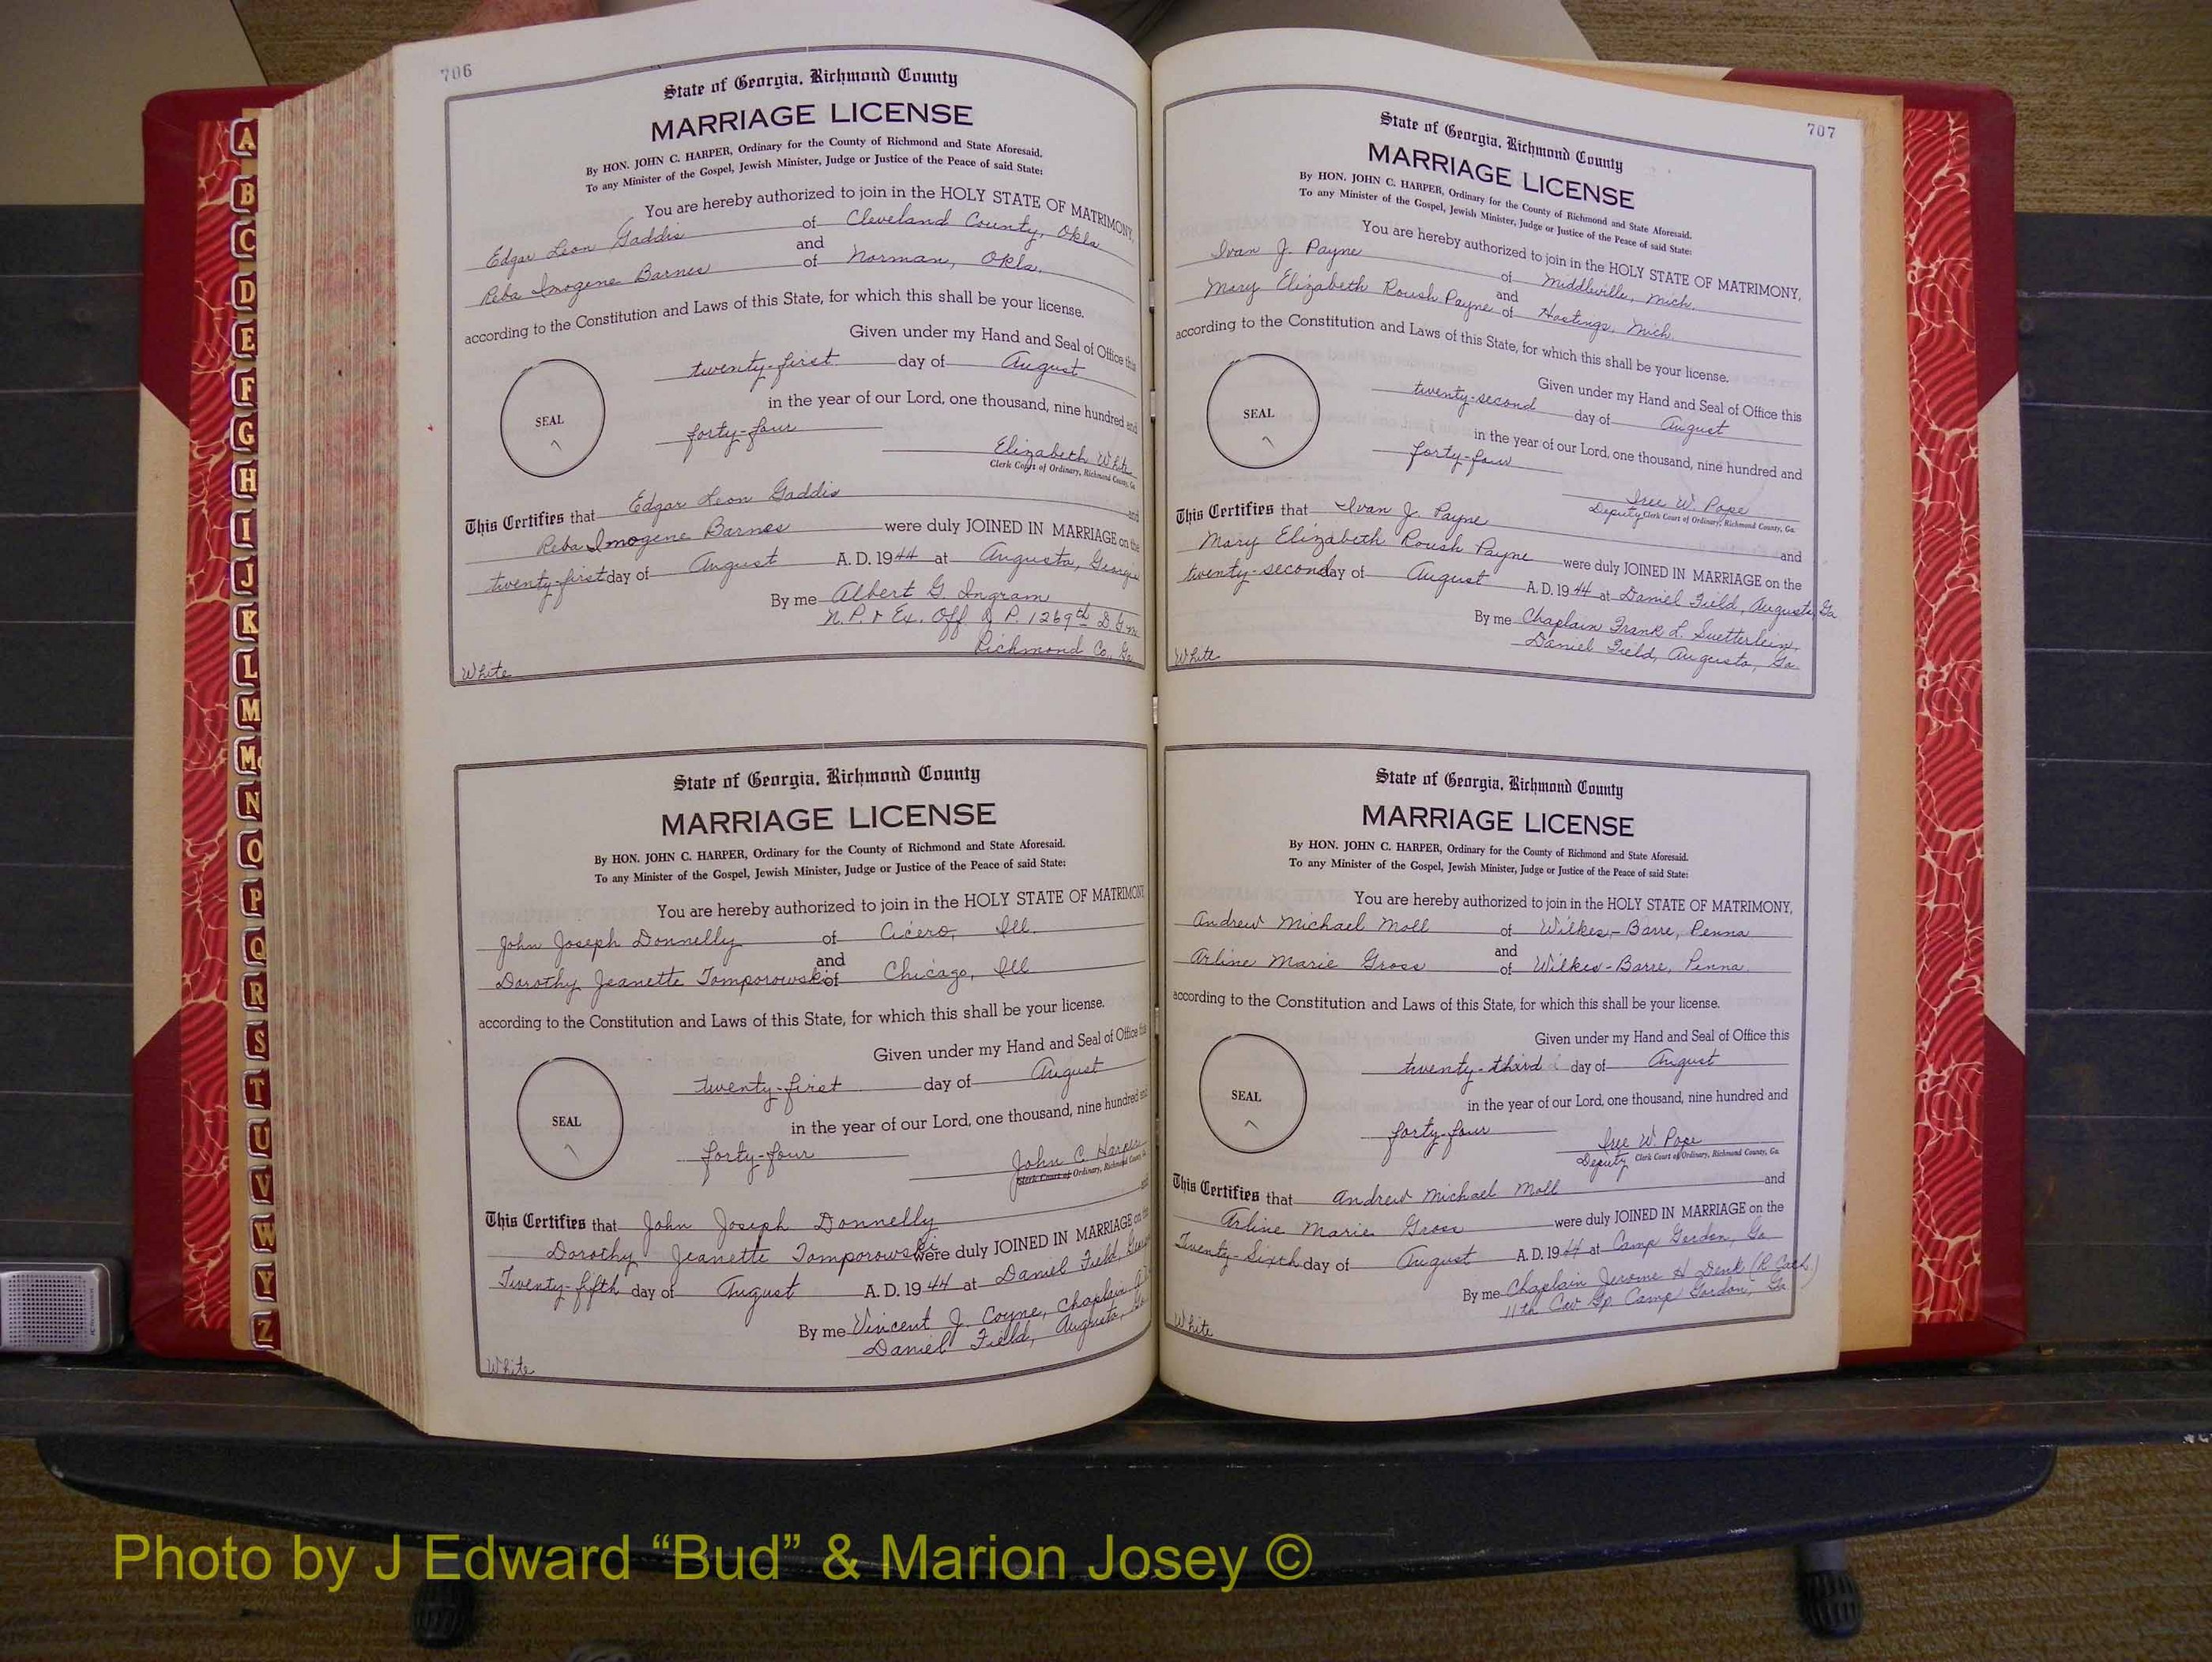 706
State of Georgia, Richmond County
MARRIAGE LICENSE
By HON. JOHN C. HARPER, Ordinary for the County of Richmond and State Aforesaid.
To any Minister of the Gospel, Jewish Minister, Judge or Justice of the Peace of said State:
You are hereby authorized to join in the HOLY STATE OF MATRIMONY,
Edgar Leon Gaddis of Cleveland County, Okla
and
Reba Imogene Barnes of Norman, Okla.
according to the Constitution and Laws of this State, for which this shall be your license.
Given under my Hand and Seal of Office this
twenty-first day of August
SEAL
in the year of our Lord, one thousand, nine hundred and
forty-four
Elizabeth White
Clerk Court of Ordinary, Richmond County, Ga
This Certifies that Edgar Leon Gaddis and
Reba Imogene Barnes were duly JOINED IN MARRIAGE on the
twenty-first day of August A. D. 1944 at Augusta, Georgia
By me Albert G. Ingram
N.P. & Ex. Off J.P. 1269th D G.m
Richmond Co., Ga
White
State of Georgia, Richmond County
MARRIAGE LICENSE
By HON. JOHN C. HARPER, Ordinary for the County of Richmond and State Aforesaid.
To any Minister of the Gospel, Jewish Minister, Judge or Justice of the Peace of said State:
You are hereby authorized to join in the HOLY STATE OF MATRIMONY
John Joseph Donnelly of Cicero, Ill.
and
Dorothy Jeanette Tomporowski of Chicago, Ill
according to the Constitution and Laws of this State, for which this shall be your license.
Given under my Hand and Seal of Office this
twenty-first day of August
SEAL
in the year of our Lord, one thousand, nine hundred and
forty-four
John C. Harper
Clerk Court of Ordinary, Richmond County
and
This Certifies that John Joseph Donnelly
Dorothy Jeanette Tomporowski were duly JOINED IN MARRIAGE on the
Twenty-fifth day of August A. D. 1944 at Daniel Field,
By me Vincent J. Coyne, Chaplain
Daniel Field, Augusta, Ga
White
707
State of Georgia, Richmond County
MARRIAGE LICENSE
By HON. JOHN C. HARPER, Ordinary for the County of Richmond and State Aforesaid.
To any Minister of the Gospel, Jewish Minister, Judge or Justice of the Peace of said State:
You are hereby authorized to join in the HOLY STATE OF MATRIMONY,
Ivan J. Payne of Middleville, Mich.
and
Mary Elizabeth Roush Payne of Hastings, Mich.
according to the Constitution and Laws of this State, for which this shall be your license.
Given under my Hand and Seal of Office this
twenty-second day of August
SEAL
in the year of our Lord, one thousand, nine hundred and
forty-four
W. Pope
Deputy Clerk Court of Ordinary, Richmond County, Ga.
This Certifies that Ivan J. Payne and
Mary Elizabeth Roush Payne were duly JOINED IN MARRIAGE on the
twenty-second day of August A. D. 1944 at Daniel Field, Augusta, Ga
By me Chaplain Frank L. Suetterlein,
Daniel Field, Augusta, Ga.
White
State of Georgia, Richmond County
MARRIAGE LICENSE
By HON. JOHN C. HARPER, Ordinary for the County of Richmond and State Aforesaid.
To any Minister of the Gospel, Jewish Minister, Judge or Justice of the Peace of said State:
You are hereby authorized to join in the HOLY STATE OF MATRIMONY,
Andrew Michael Moll of Wilkes-Barre, Penna
and
Arline Marie Gross of Wilkes-Barre, Penna.
according to the Constitution and Laws of this State, for which this shall be your license.
Given under my Hand and Seal of Office this
twenty-third day of August
SEAL
in the year of our Lord, one thousand, nine hundred and
forty-four
W. Pope
Deputy Clerk Court of Ordinary, Richmond County, Ga.
This Certifies that Andrew Michael Moll and
Arline Marie Gross were duly JOINED IN MARRIAGE on the
Twenty-Sixth day of August A. D. 1944 at Camp Gordon, Ga
By me Chaplain Jerome H Denk (R Cath.)
11th Cav Gp Camp Gordon, Ga
White
A
B
C
D
E
F
G
H
I
J
K
L
M
Mc
N
O
P
Q
R
S
T
U
V
W
Y
Z
Photo by J Edward “Bud” & Marion Josey ©